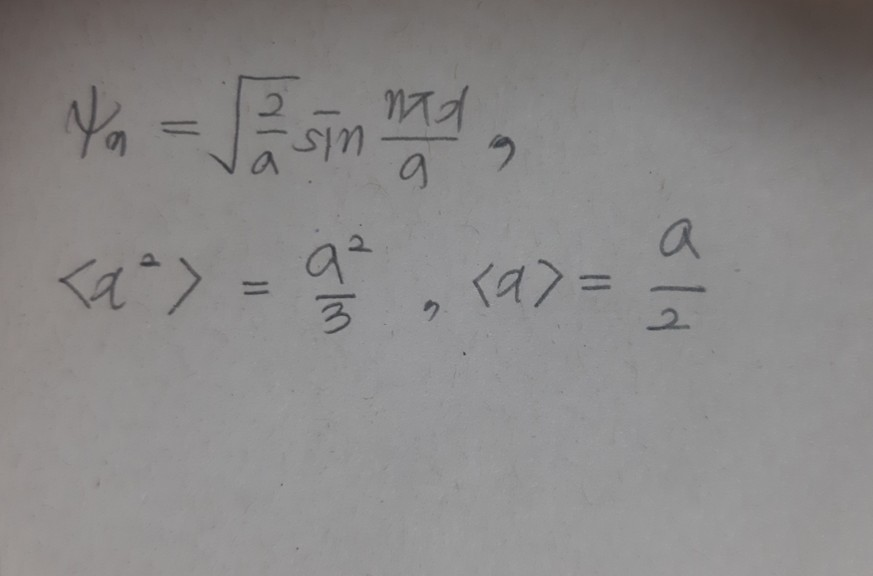 ψₙ = √(2/a) sin nπx/a ,
⟨x²⟩ = a²/3 , ⟨x⟩ = a/2